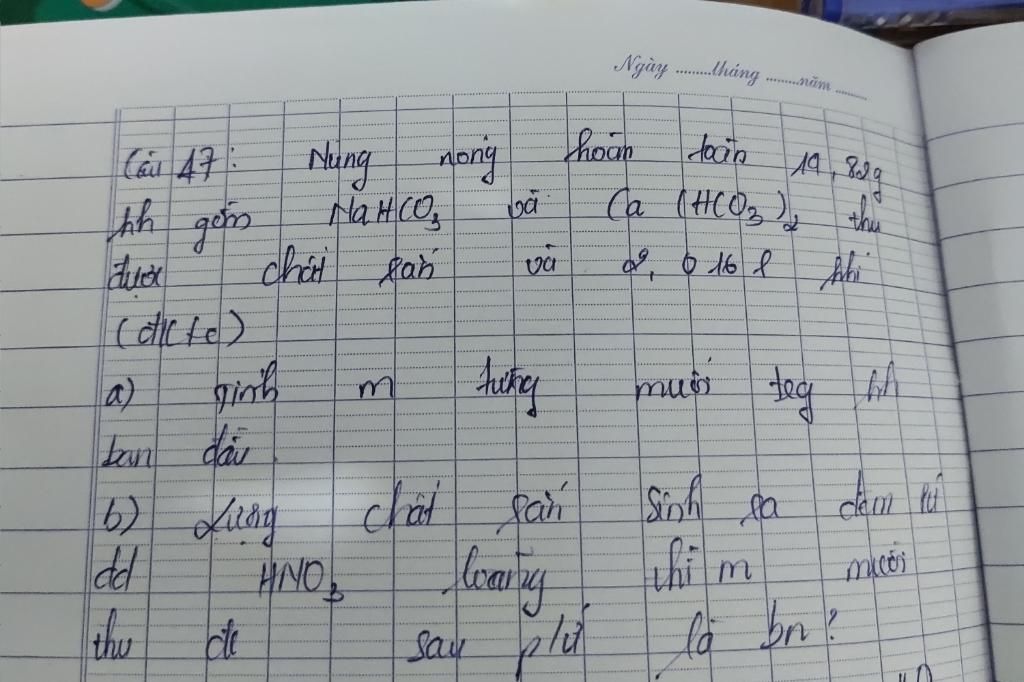 Ngày ........tháng ........năm ........
Câu 47: Nung nóng hoàn toàn 19,82g
hh gồm NaHCO3 và Ca(HCO3)2 thu
được chất rắn và 2,016 l khí
(đktc)
a) tính m từng muối tɛg hh
ban đầu.
b) Lượng chất rắn sinh ra đem t/d
dd HNO3 loãng thì m muối
thu đc sau p/ứ là bn?